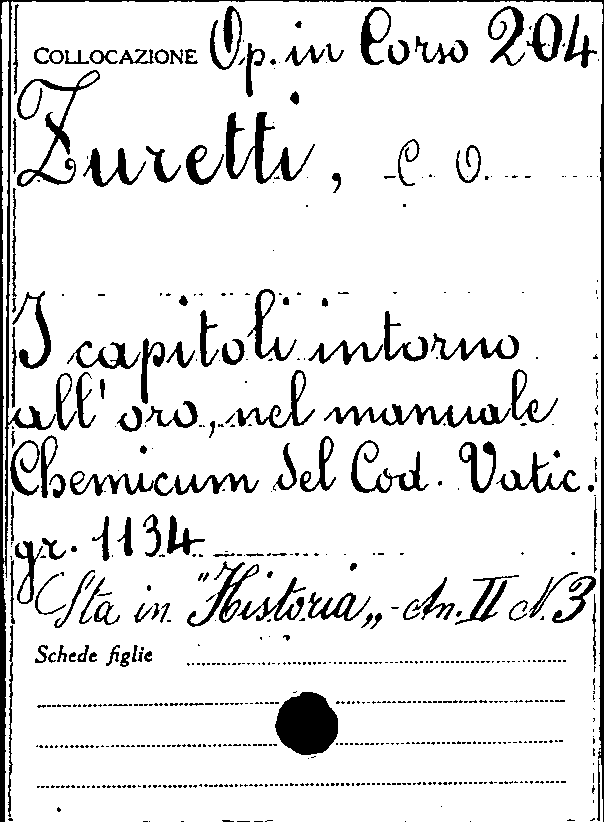 COLLOCAZIONE Op. in Corso 204
Zuretti, C. O.
I capitoli intorno
all' oro, nel manuale
Chemicum del Cod. Vatic.
gr. 1134
Sta in "Historia„ - An. II N. 3
Schede figlie